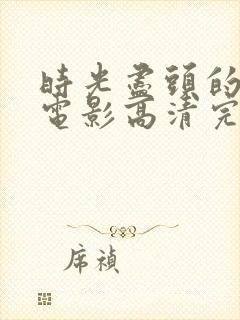 時光盡頭的
電影高清完
席禎